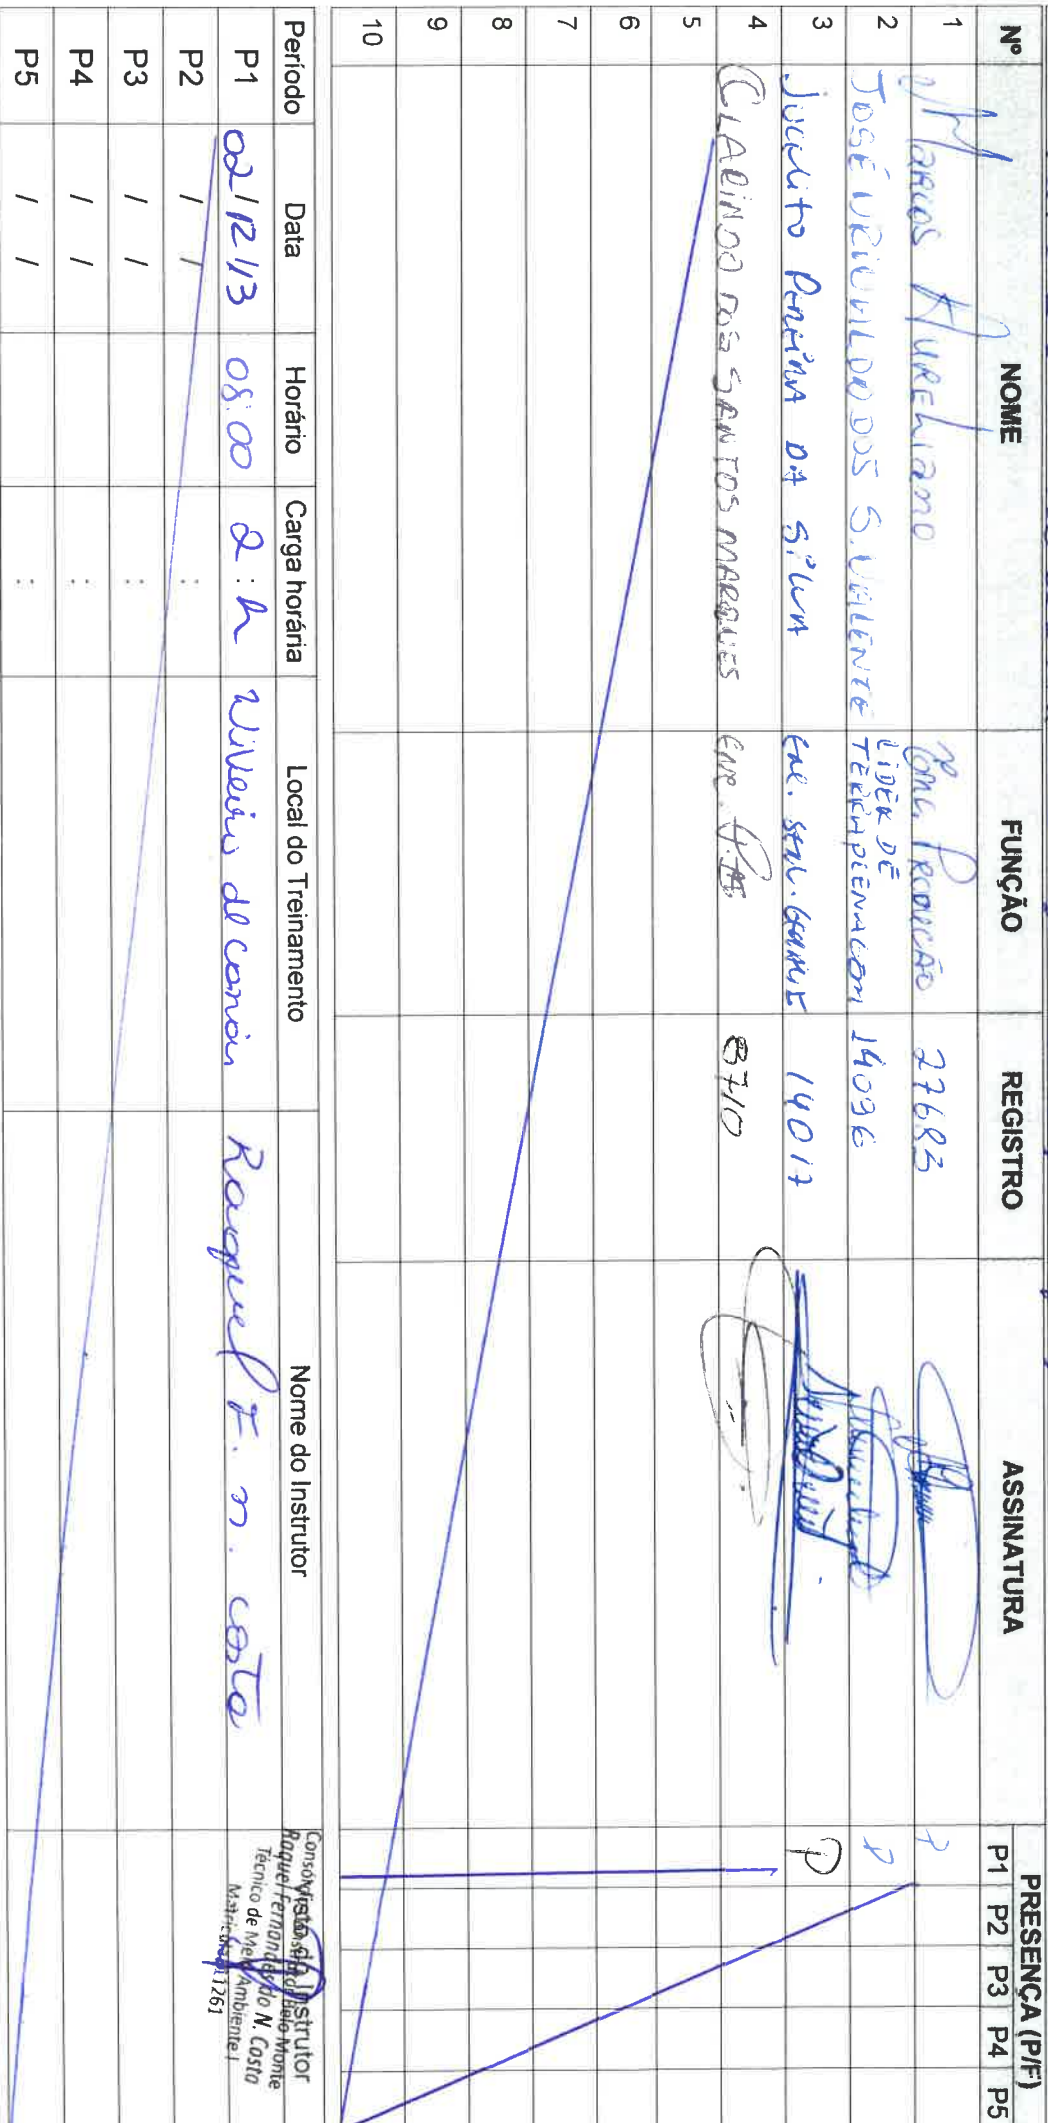 Nº NOME FUNÇÃO REGISTRO ASSINATURA PRESENÇA (P/F)
P1 P2 P3 P4 P5
1 Marcos Aureliano Enc. Produção 27683 P
2 JOSÉ URIVALDO DOS S. VALENTE LÍDER DE TERRAPLENAGEM 14096 P
3 Juvulito Pereira DA Silva Enc. Serv. 14017 P
4 CLARINDO DOS SANTOS MARQUES Enc. 8710
5
6
7
8
9
10
Período Data Horário Carga horária Local do Treinamento Nome do Instrutor Visto do Instrutor
P1 02/12/13 08:00 2:h Viveiro de Raquel F. N. Costa
P2 / / :
P3 / / :
P4 / / :
P5 / / :
Consórcio Construtor Belo Monte
Raquel Fernandes do N. Costa
Técnico de Meio Ambiente I
Matrícula 11261